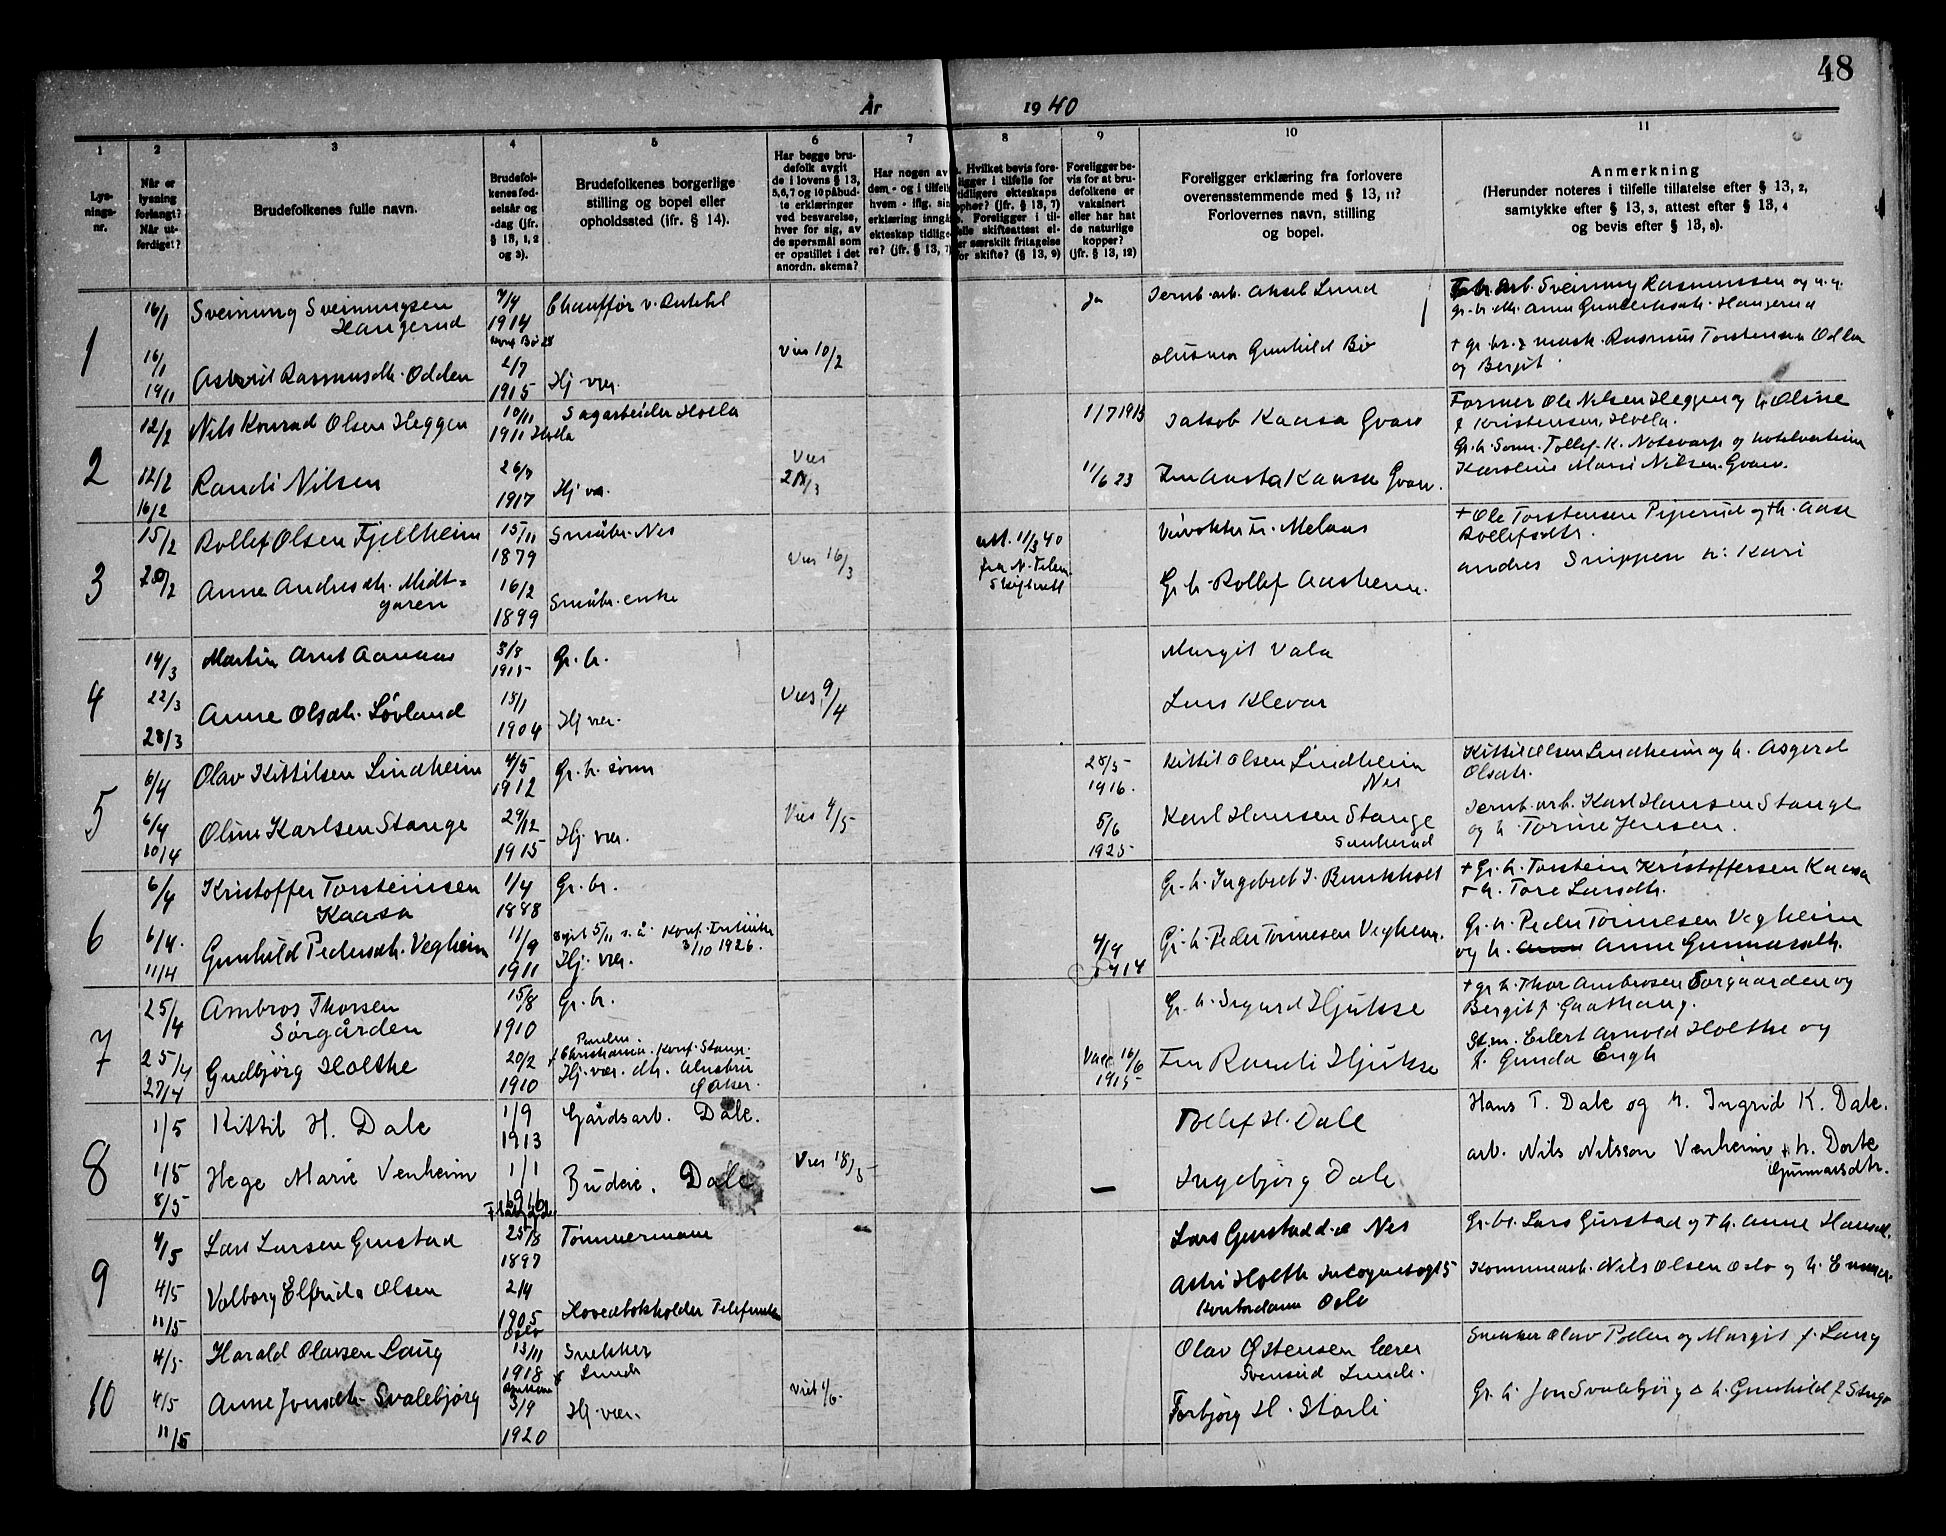 48
År 1940
1 2 3 4 5 6 7 8 9 10 11
Lys-
nings-
nr.
Når er
lysning
forlangt?
Når ut-
ferdiget?
Brudefolkenes fulle navn.
Brudefol-
kenes fød-
selsår og
-dag (jfr.
§ 13, 1, 2
og 3).
Brudefolkenes borgerlige
stilling og bopel eller
opholdssted (ifr. § 14).
Har begge bru-
defolk avgit
de i lovens § 13,
5,6,7 og 10 påbud-
te erklæringer
ved besvarelse,
hver for sig, av
de spørsmål som
er opstillet i det
anordn. skema?
Har nogen av
dem - og i tilfelle
hvem - iflg. sin
erklæring inngått
ekteskap tidlige-
re? (jfr. § 13, 7)
Hvilket bevis fore-
ligger i tilfelle for
tidligere ekteskaps
ophør? (jfr. § 13, 7)
Foreligger i til-
felle skifteattest el-
ler særskilt fritagelse
for skifte? (§ 13, 9)
Foreligger be-
vis for at bru-
defolkene er
vaksinert
eller har hat
de naturlige
kopper?
(jfr. § 13, 12)
Foreligger erklæring fra forlovere
overensstemmende med § 13, 11?
Forlovernes navn, stilling
og bopel.
Anmerkning
(Herunder noteres i tilfelle tillatelse efter § 13, 2,
samtykke efter § 13, 3, attest efter § 13, 4
og bevis efter § 13, 8).
1
16/1
16/1
19/1
Sveinung Sveinungsen
Haugerud
1914
Chauffør v.
Ja
Jernb. arb. Aksel Lund
Arb. Sveinung Rasmussen og
gr.br. dtr. Anne Gundersdtr. Haugerud
Astrid Rasmusdtr. Odden
2/7
1915
Hj. vær.
Vies 10/2
Gunhild Bø
Rasmus Torstensen Odden
og Bergit
2
12/2
12/2
16/2
Nils Konrad Olsen Heggen
10/11
1911 Holla
Sagarbeider Holla
1/7 1915
Jakob Kaasa Gvarv
Ole Nilsen Heggen og h. Oline
f. Kristensen, Holla.
Randi Nilsen
26/7
1917
Hj. vær.
Vies
11/6 23
Fru Aasta Kaasa Gvarv.
Gr.h. Sønn. Tollef K. Notevarp og hotelvertinne
Karoline Marie Nilsen. Gvarv.
3
15/2
20/2
Rollef Olsen Fjellheim
15/11
1879
Småbr. Nes
att. 11/3 40
fra N. Telem.
Skifterett
Veivokter Fr. Melaas
+ Ole Torstensen Piperud og + h. Aase
Rollefsdtr.
Anne Andresdtr. Midt-
garen
16/2
1899
Småbr. enke
Vies 16/3
Gr. br. Rollef Aasheim.
Andres Snippen h. Kari
4
14/3
22/3
28/3
Martin Arnt Aanaas
3/8
1915
Gr. br.
Margit Vala
Anne Olsdtr. Løvland
15/1
1904
Hj. vær.
Vies 9/4
Lars Klevar
5
6/4
6/4
10/4
Olav Kittilsen Lindheim
4/5
1912
Gr. br. sønn
28/5
1916.
Kittil Olsen Lindheim
Nes
Kittil Olsen Lindheim og h. Asgerd
Olsdtr.
Oline Karlsen Stange
29/12
1915
Hj. vær.
Vies 4/5
5/6
1925
Karl Hansen Stange
Sauherad
Jernb. arb. Karl Hansen Stange
og h. Torine Jensen.
6
6/4
6/4.
11/4
Kristoffer Torsteinsen
Kaasa
1/4
1888
Gr. br.
Gr. br. Ingebret J. Bunkholt
+ Gr. br. Torstein Kristoffersen Kaasa
+ h. Tore Larsdtr.
Gunhild Pedersdtr. Vegheim
11/9
1911
døpt 5/11 s. å. Konf.
3/10 1926.
Hj. vær.
4/9
1914
Gr. br. Peder Tovnesen Vegheim.
Gr. br. Peder Tovnesen Vegheim
og h. Anne Gunnarsdtr.
7
25/4
25/4
27/4
Ambros Thorsen
Sørgården
15/8
1910
Gr. br.
Gr. br. Sigurd Hjukse
+ gr. br. Thor Ambrosen Sørgaarden og
Bergit f. Gaathaug.
Gudbjørg Holthe
20/2
1910
f. Christiania. Konf. Stange.
Hj. vær. dtr.
Vacc 16/6
1915
Fru Randi Hjukse
St.m. Eilert Arnold Holthe og
f. Gunda Engh
8
1/5
1/5
8/5
Kittil H. Dale
1/9
1913
Gårdsarb. Dale.
Tollef H. Dale
Hans T. Dale og h. Ingrid K. Dale.
Hege Marie Venheim
1/1
1916
Budeie. Dale
Vies 18/5
Ingebjørg Dale
arb. Nils Nilsson Venheim + h. Dorte
Gunnarsdtr.
9
4/5
4/5
11/5
Lars Larsen Gurstad
25/8
1897
Tømmermann
Lars Gurstad d.e. Nes
Gr. br. Lars Gurstad og + h. Anne Hansdtr.
Valborg Elfrida Olsen
2/4
1905
Oslo
Hovedbokholder Telefunken
Astri Holth Incognitogt 5
Kontordame Oslo
Nils Olsen Oslo og h. Emma
10
4/5
4/5
11/5
Harald Olavsen Laug
13/11
1918
Snekker
Lunde
Olav Østensen lærer
Svenseid Lunde.
Snekker Olav og Margit f. Laug
Anne Jonsdtr. Svalebjørg
3/9
1920
Hj. vær.
Viet 1/6.
Torbjørg H. Storli
Gr. br. Jon Svalebjørg h. Gunhild f.